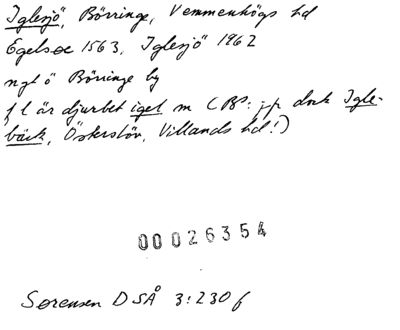 Iglesjö, Börringe, Vemmenhögs hd
Egelsoe 1563, Iglesjö 1962
ngt ö Börringe by
f l är djurbet igel m (Bs: jfr dock Igle-
bäck, Österslöv, Villands hd!)
00026354
Sørensen DSÅ 3:230 f